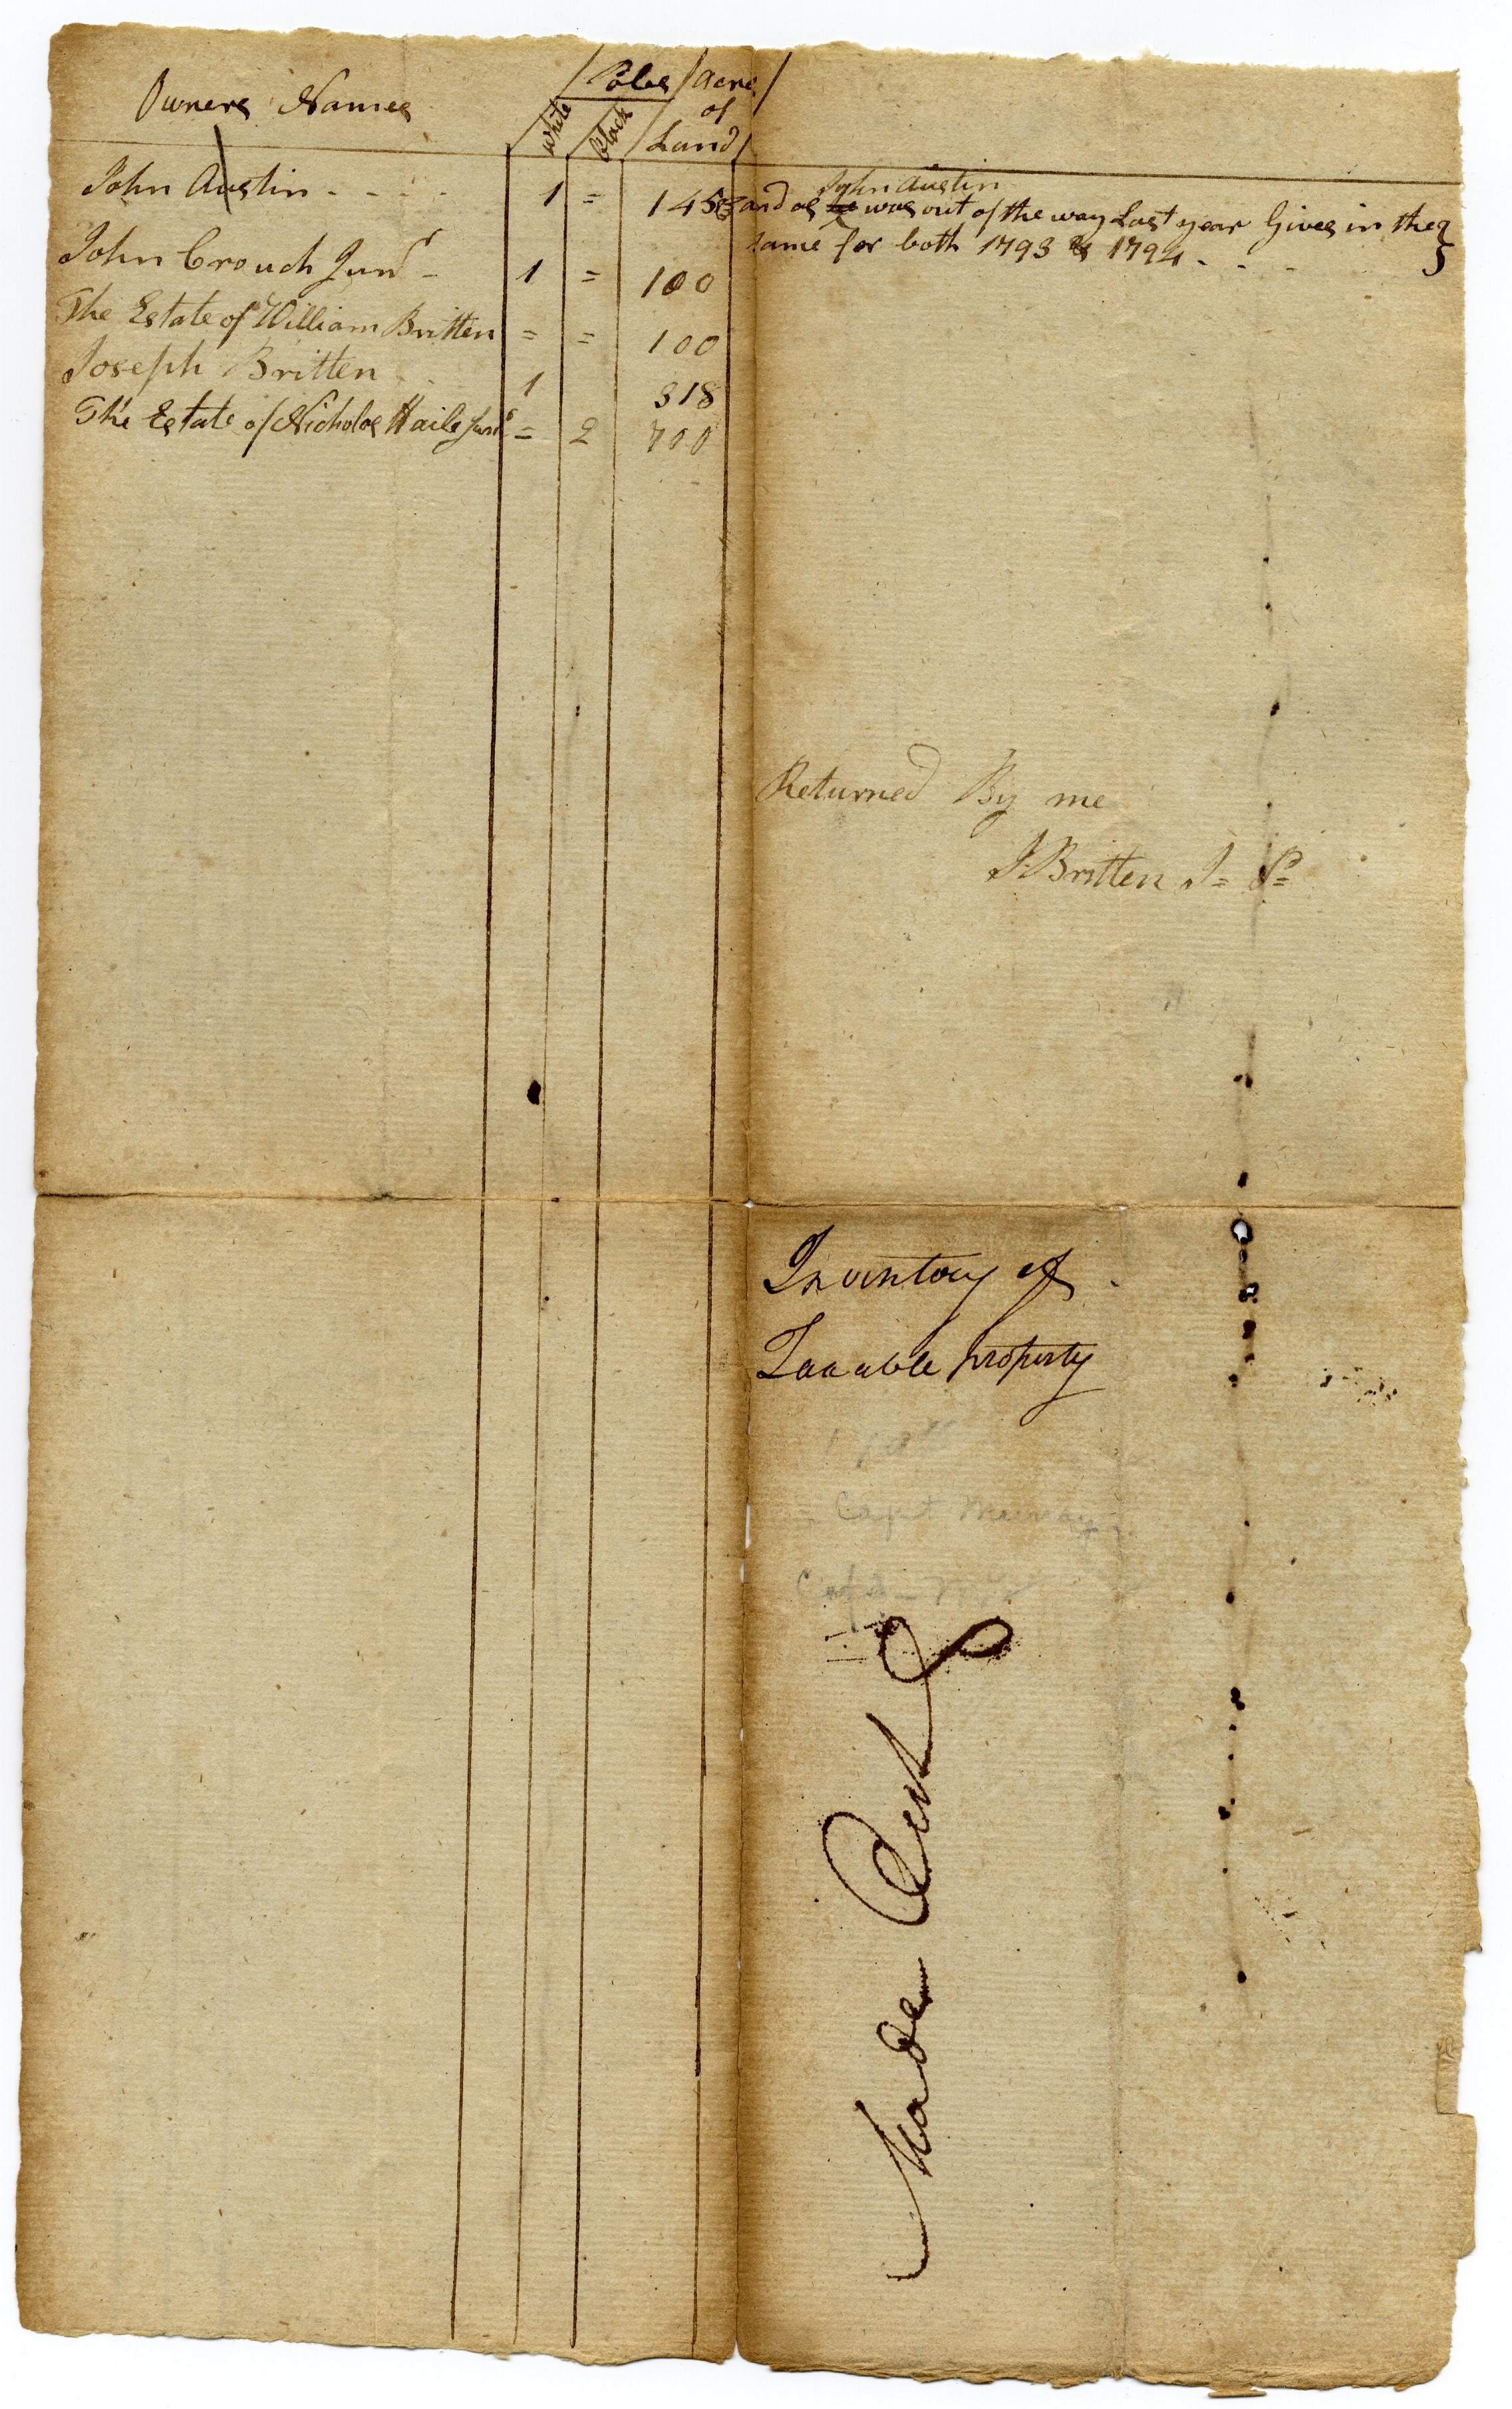 Owners Names | Poles | Acre of Land
White | black
John Austin - - - - 1 = 145 and as John Austin was out of the way Last year Gives in the
same for both 1793 & 1794 - - -
John Crouch Junr - 1 = 100
The Estate of William Britten = = 100
Joseph Britten - - 1 318
The Estate of Nicholas Haile Junr = 2 700
Returned By me
J. Britten J= P=
Inventory of
Taxable property
Capt Murray